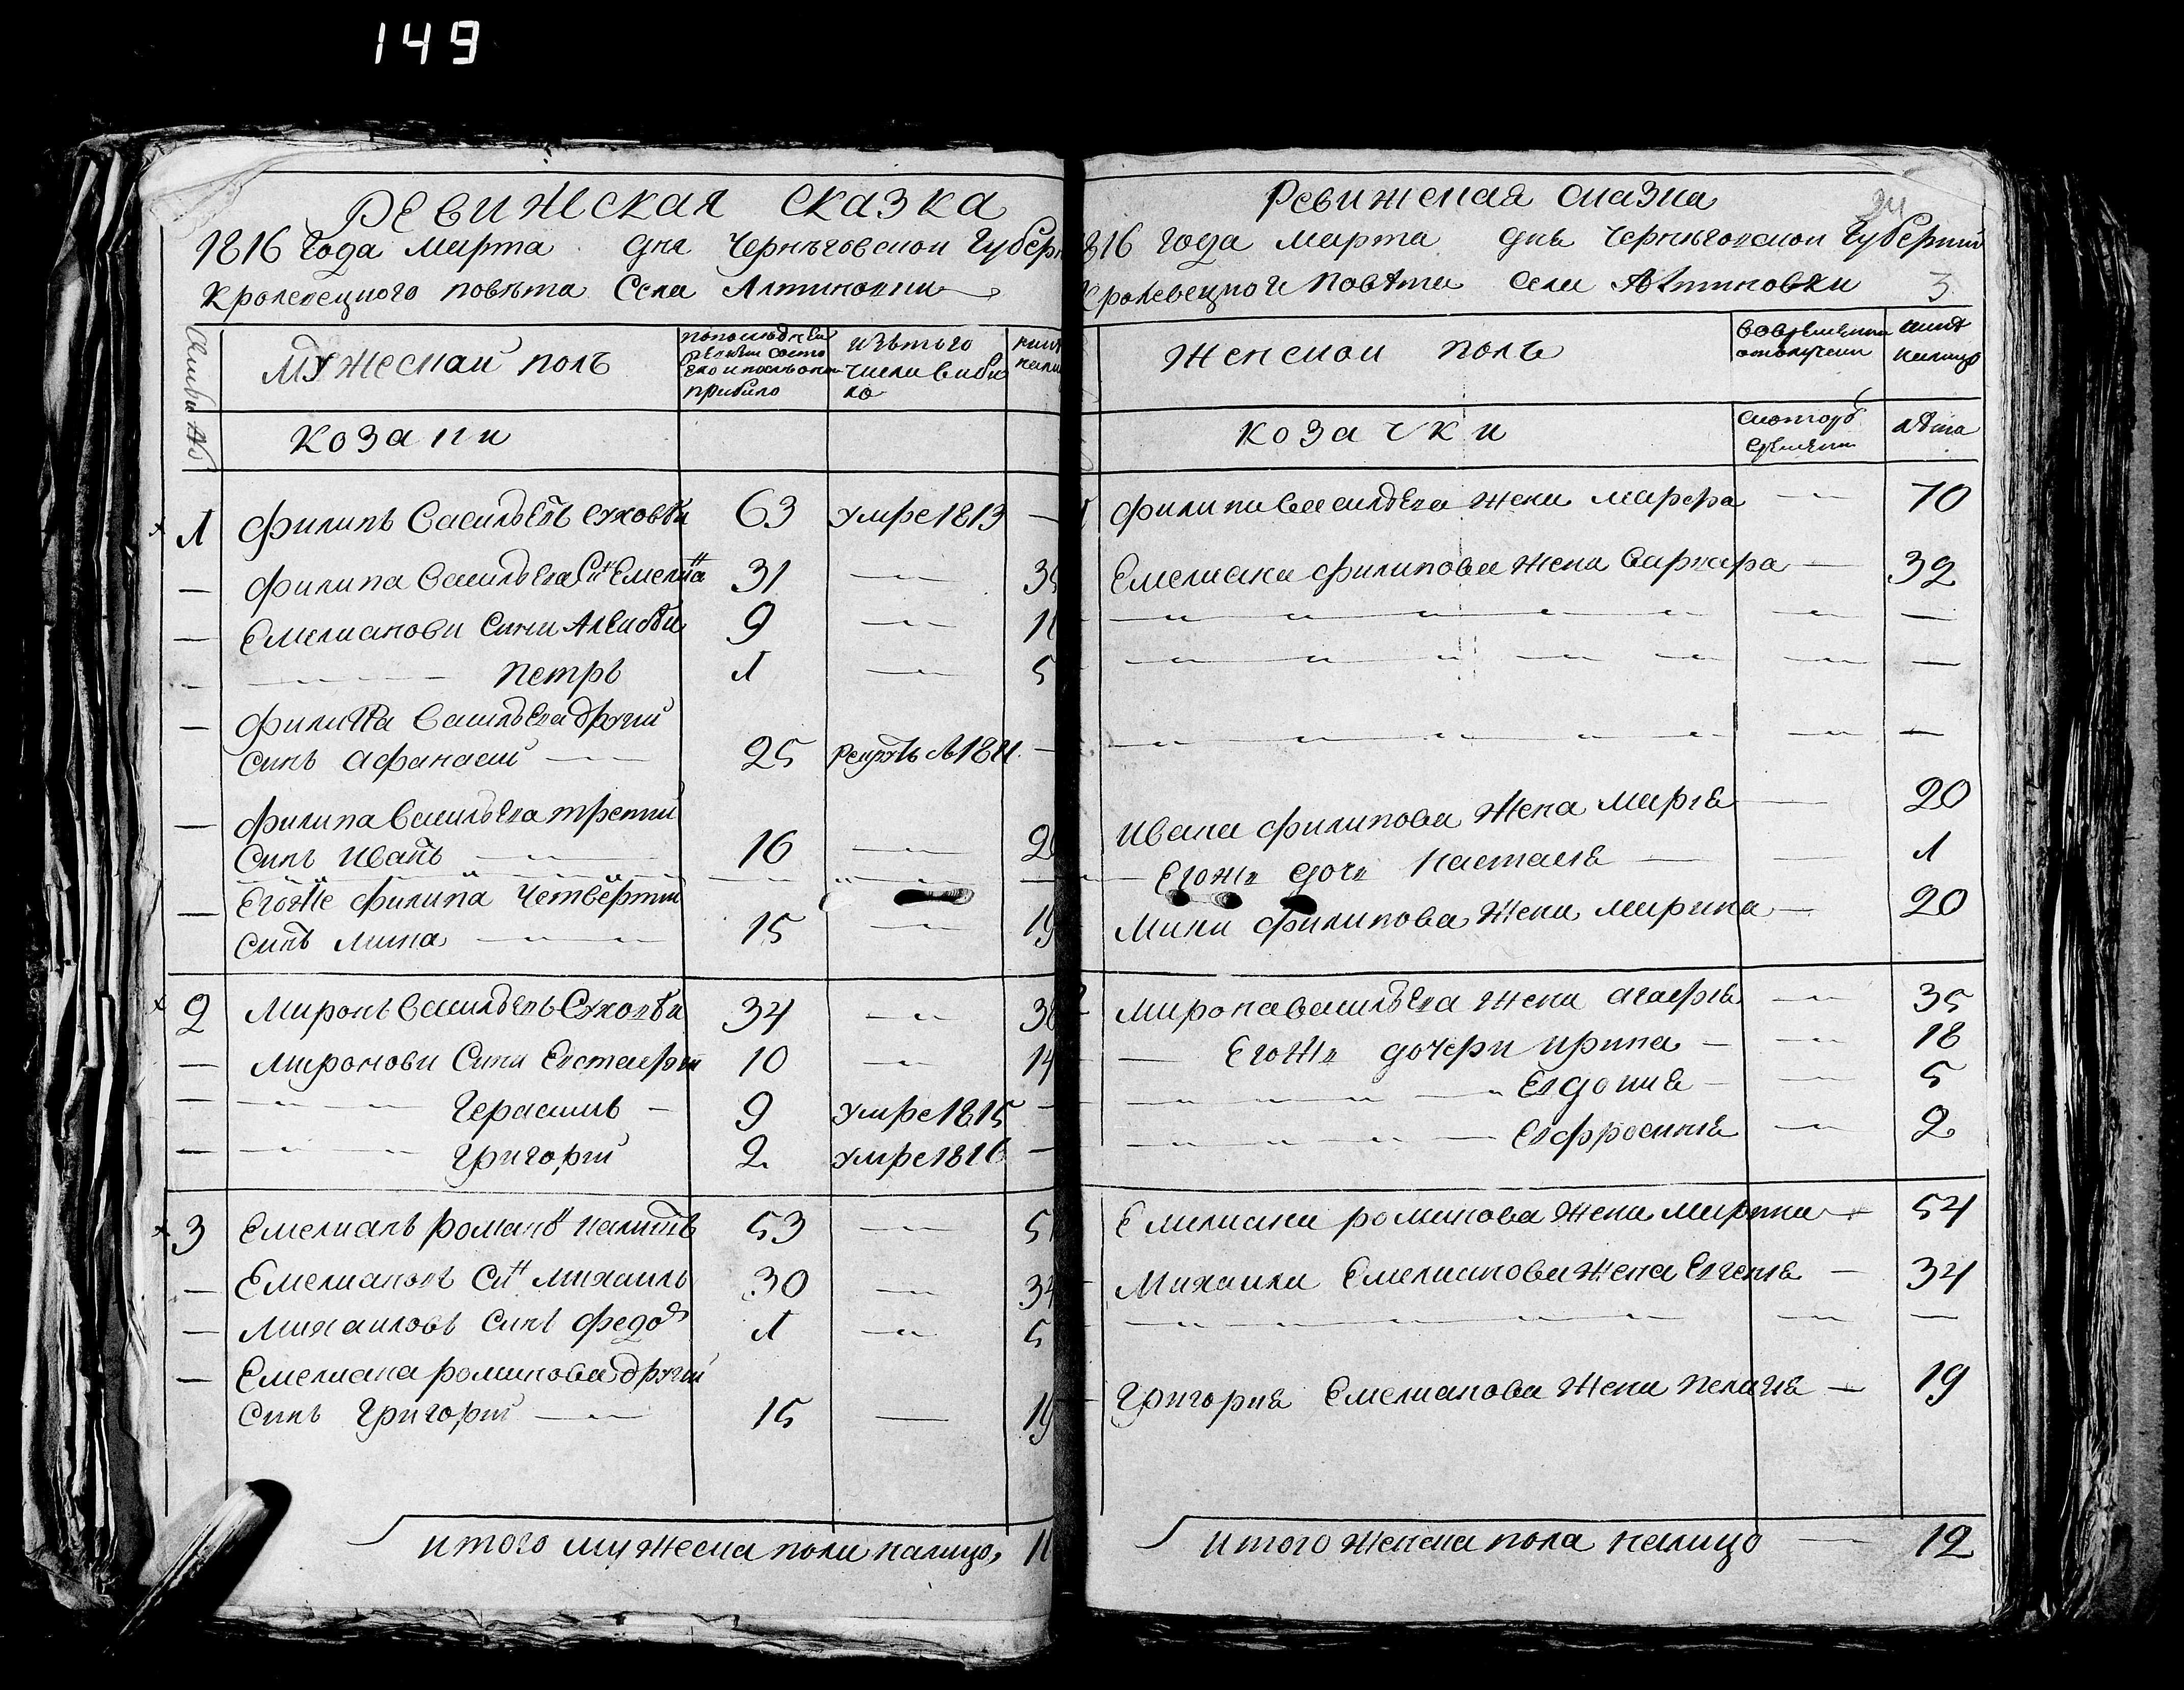 149
Ревижская сказка
1816 Года марта дня Черниговской Губерн
Кролевецкого повѣта Села Алтиновки
Мужеской полъ
изътого числа вибило
Козаки
1 Филипъ Васильевъ 63 умре 1813 —
— Филипа Васильева Снъ Емелиа 31 —
— Емелианови Сини 9 —
Петръ 1 — 5
— Филипа Васильева другий
Синъ Афанасий 25
— Филипа Васильева третий
Синъ Иванъ 16 —
— Егоже Филипа Четвертий
Синъ Мина 15 — 19
2 Миронъ Васильевъ 34 —
— Миронови Сини Евстафий 10 — 14
Герасимъ 9 умре 1815 —
Григорий 2 умре 1816 —
3 Емелианъ романъ 53 —
— Емелиановъ Снъ Михаилъ 30 — 34
— Михаиловъ Синъ Федоръ 1 — 5
— Емелиана романова другий
Синъ Григорий 15 — 19
Итого мужеска пола налицо
Ревижская сказка
24
1816 Года марта дня Черниговской Губернии
Кролевецкого Повѣта Села Алтиновки 3
Женской полъ
Козачки лѣта
Филипа Васильева жена Марфа — 70
Емелиана Филипова жена Варвара — 32
Ивана Филипова жена Мария — 20
Егоже дочь Настасия — 1
Мини Филипова жена Марина — 20
Мирона Васильева жена Агафия — 35
Егоже дочери Ирина — 18
Евдокия — 5
Евфросиния — 2
Емелиана романова жена Марфа 54
Михаила Емелианова жена Евгения — 34
Григория Емелианова жена Пелагия — 19
Итого женска пола налицо — 12